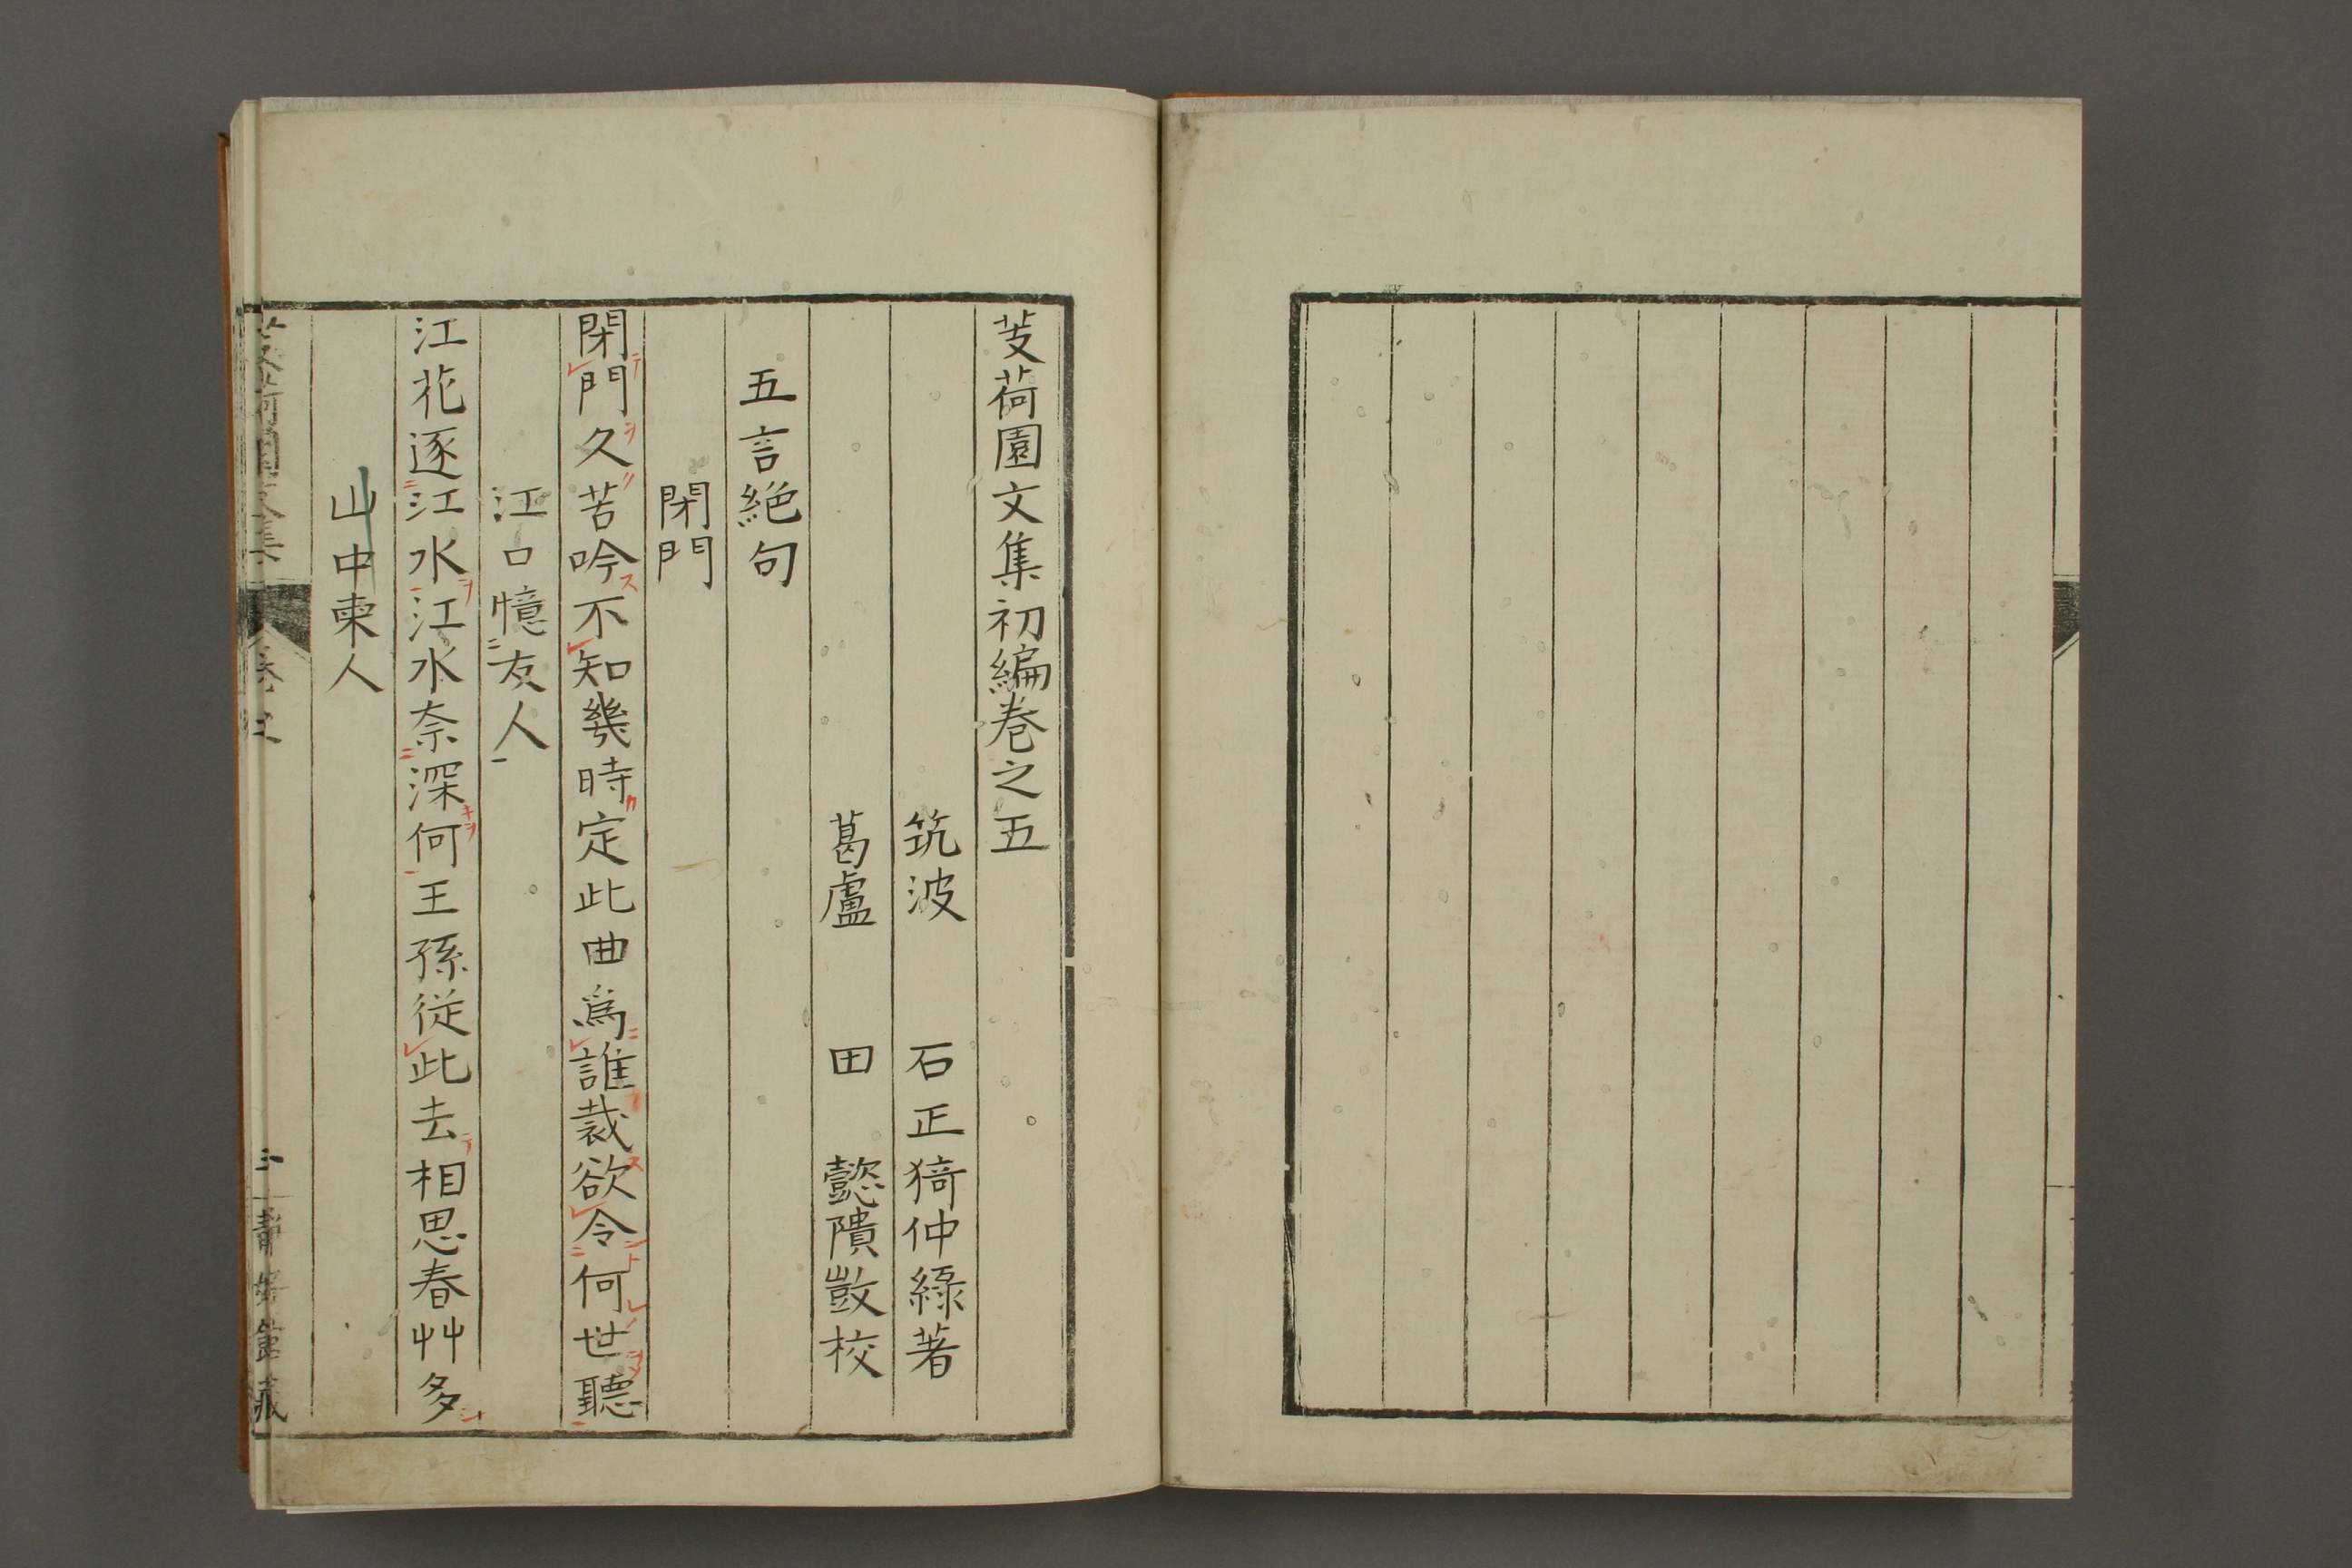 芰荷園文集初編巻之五
筑波　石正猗仲緑著
葛盧　田　懿隤敳校
五言絶句
閑門
閑門久苦吟不知幾時定此曲爲誰裁欲令何世聽
江口憶友人
江花逐江水江水奈深何王孫従此去相思春艸多
山中柬人